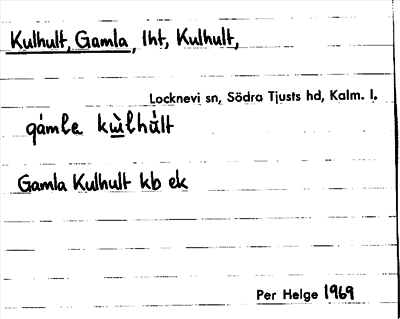 Kulhult, Gamla, lht, Kulhult,
Locknevi sn, Södra Tjusts hd, Kalm. l.
gámle kɯ̀lhúlt
Gamla Kulhult kb ek
Per Helge 1969